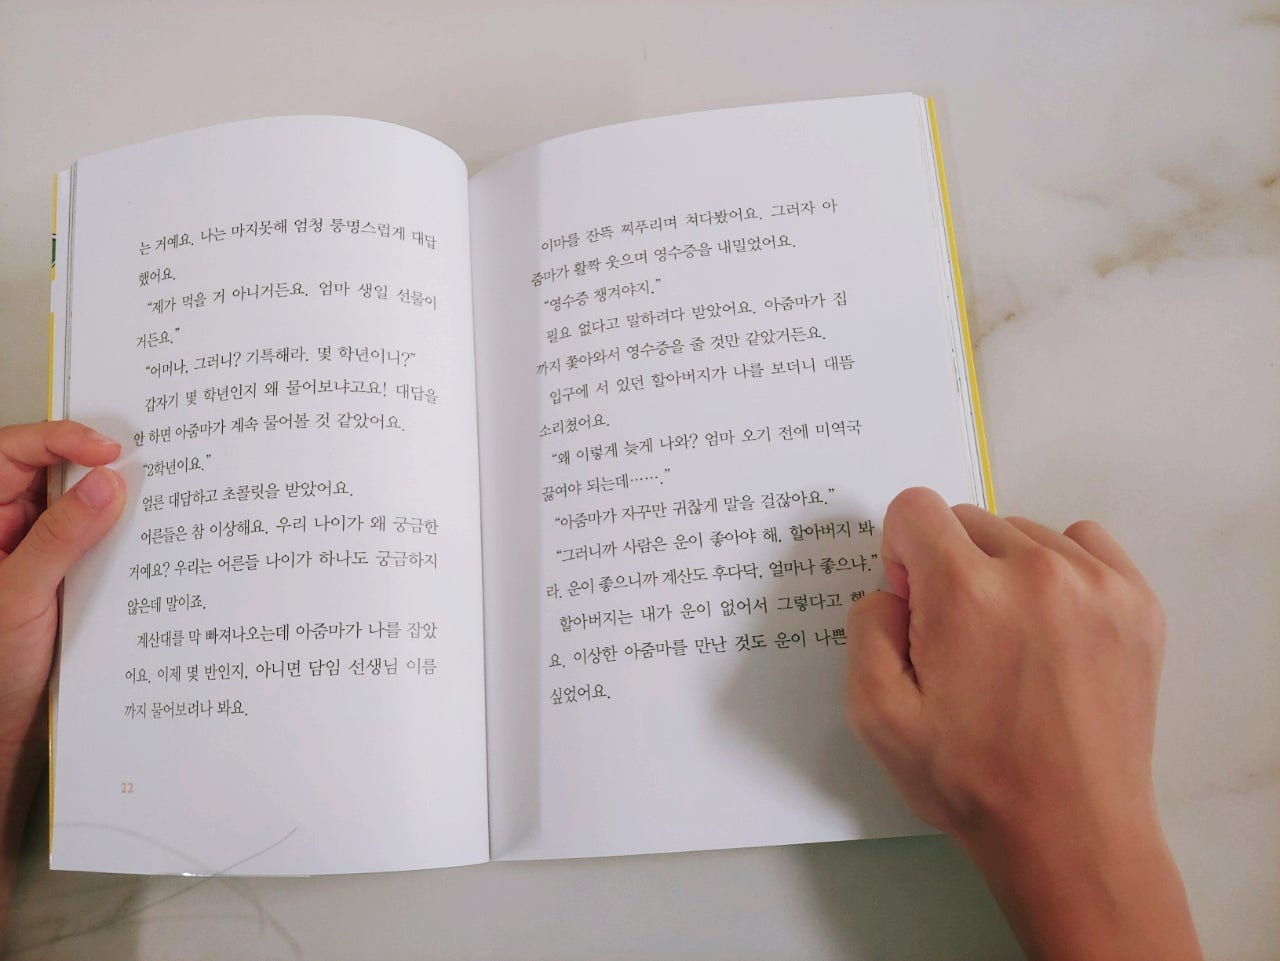 는 거예요. 나는 마지못해 엄청 퉁명스럽게 대답
했어요.
“제가 먹을 거 아니거든요. 엄마 생일 선물이
거든요.”
“어머나, 그러니? 기특해라. 몇 학년이니?”
갑자기 몇 학년인지 왜 물어보냐고요! 대답을
안 하면 아줌마가 계속 물어볼 것 같았어요.
“2학년이요.”
얼른 대답하고 초콜릿을 받았어요.
어른들은 참 이상해요. 우리 나이가 왜 궁금한
거예요? 우리는 어른들 나이가 하나도 궁금하지
않은데 말이죠.
계산대를 막 빠져나오는데 아줌마가 나를 잡았
어요. 이제 몇 반인지, 아니면 담임 선생님 이름
까지 물어보려나 봐요.
22
이마를 잔뜩 찌푸리며 쳐다봤어요. 그러자 아
줌마가 활짝 웃으며 영수증을 내밀었어요.
“영수증 챙겨야지.”
필요 없다고 말하려다 받았어요. 아줌마가 집
까지 쫓아와서 영수증을 줄 것만 같았거든요.
입구에 서 있던 할아버지가 나를 보더니 대뜸
소리쳤어요.
“왜 이렇게 늦게 나와? 엄마 오기 전에 미역국
끓여야 되는데…….”
“아줌마가 자꾸만 귀찮게 말을 걸잖아요.”
“그러니까 사람은 운이 좋아야 해. 할아버지 봐
라. 운이 좋으니까 계산도 후다닥. 얼마나 좋으냐.”
할아버지는 내가 운이 없어서 그렇다고
요. 이상한 아줌마를 만난 것도 운이 나쁜
싶었어요.